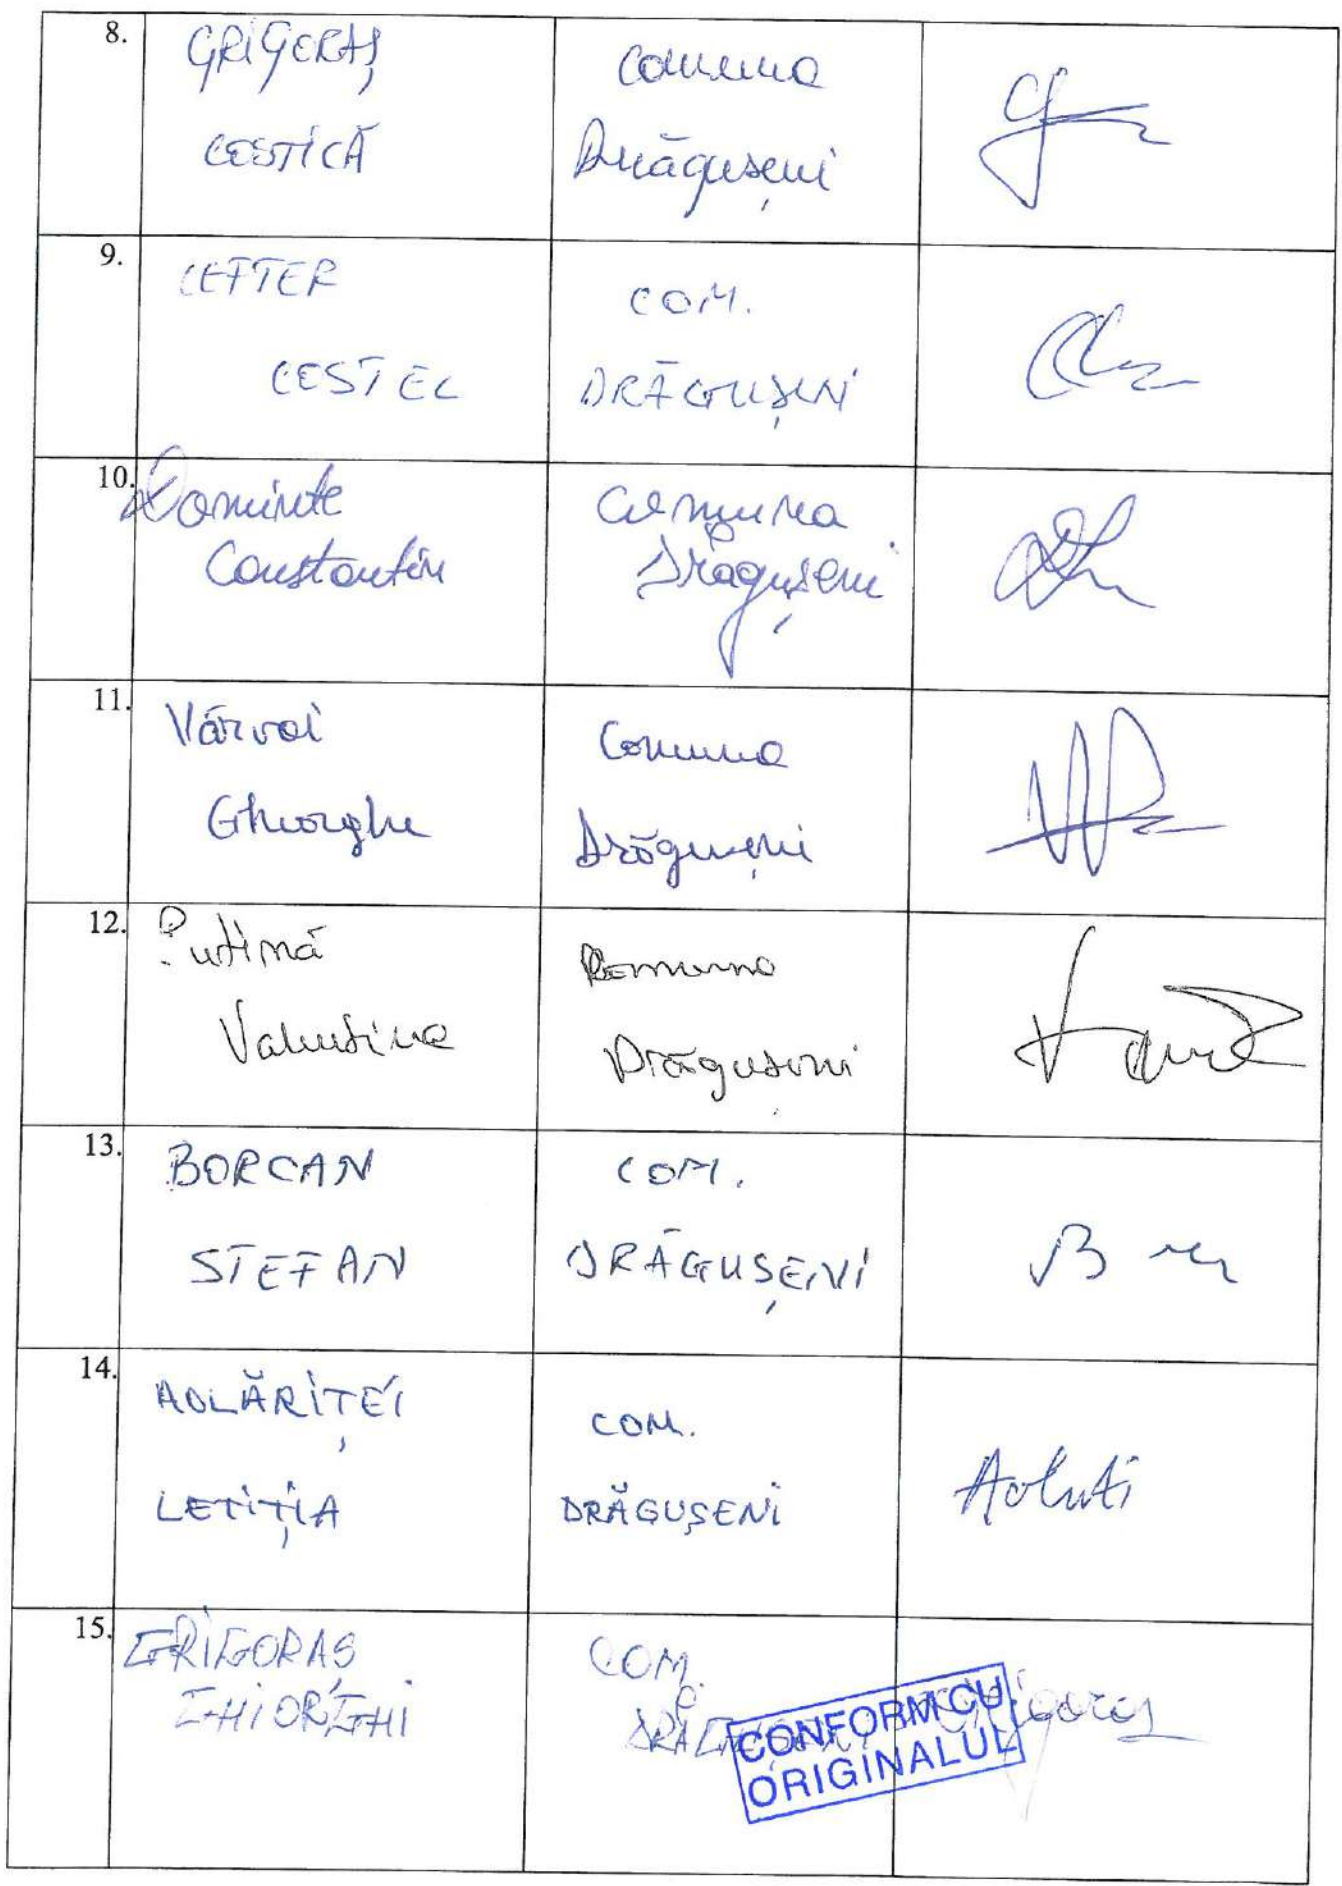 8.
GRIGORAȘ
COSTICĂ
Comuna
Drăgușeni
9.
LEFTER
COSTEL
COM.
DRĂGUȘENI
10.
Dominte
Constantin
Comuna
Drăgușeni
11.
Vârvoi
Gheorghe
Comuna
Drăgușeni
12.
Putină
Valentina
Comuna
Drăgușeni
13.
BORCAN
STEFAN
COM.
DRĂGUȘENI
14.
AOLĂRIȚEI
LETIȚIA
COM.
DRĂGUȘENI
15.
GRIGORAȘ
GHIORGHI
COM.
DRĂGUȘENI
Grigoraș
CONFORM CU
ORIGINALUL